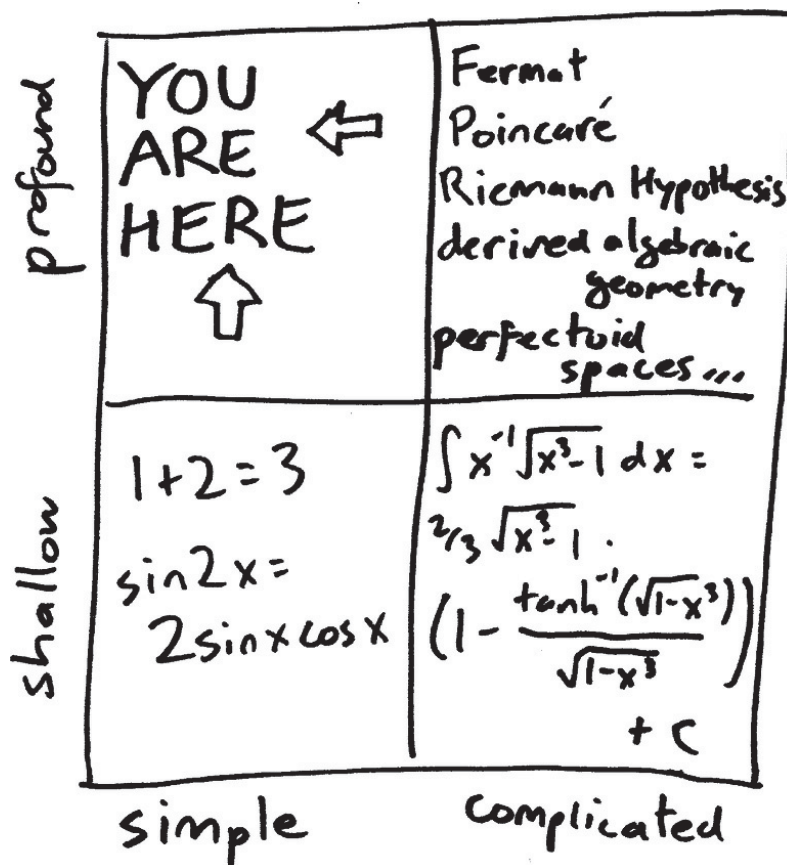 profound
YOU
ARE
HERE
Fermat
Poincaré
Riemann Hypothesis
derived algebraic
geometry
perfectoid
spaces...
shallow
1+2=3
sin2x=
2sinx cosx
∫x⁻¹√(x³-1) dx =
2/3 √(x³-1) ·
(1 - tanh⁻¹(√(1-x³)) / √(1-x³))
+ C
simple
complicated